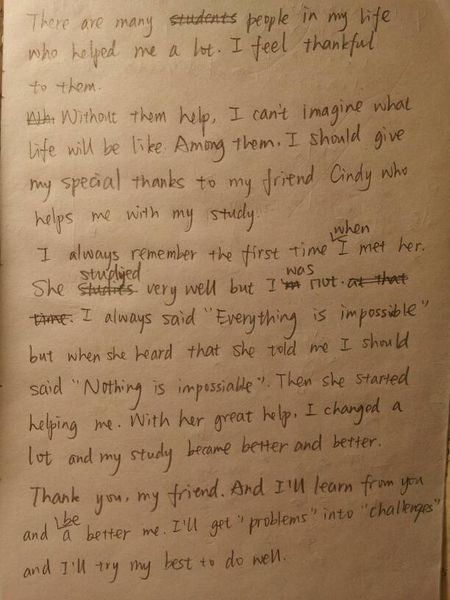 There are many students people in my life
who helped me a lot. I feel thankful
to them.
Without them help, I can't imagine what
life will be like. Among them, I should give
my special thanks to my friend Cindy who
helps me with my study.
I always remember the first time when I met her.
She studies studyed very well but I was not at that
time. I always said "Everything is impossible"
but when she heard that she told me I should
said "Nothing is impossiable". Then she started
helping me. With her great help, I changed a
lot and my study became better and better.
Thank you, my friend. And I'll learn from you
and be a better me. I'll get "problems" into "challenges"
and I'll try my best to do well.